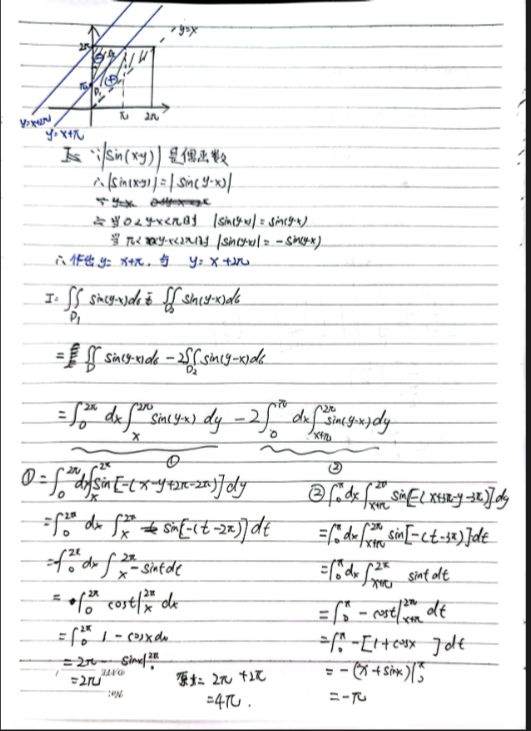 y=x
2π
D₂
π
D₁
π 2π
y=x+2π
y=x+π
∵|sin(x-y)| 是偶函数
∴|sin(x-y)|=|sin(y-x)|
当0<y-x<π时 |sin(y-x)|=sin(y-x)
当π<y-x<2π时 |sin(y-x)|=-sin(y-x)
∴作出y=x+π, 与 y=x+2π
I=∬_{D₁} sin(y-x)dσ - ∬_{D₂} sin(y-x)dσ
=∬_D sin(y-x)dσ - 2∬_{D₂} sin(y-x)dσ
=∫₀^{2π} dx∫ₓ^{2π} sin(y-x) dy - 2∫₀^π dx∫_{x+π}^{2π} sin(y-x)dy
① ②
①=∫₀^{2π} dx∫ₓ^{2π} sin[-(x-y+2π-2π)]dy
=∫₀^{2π} dx ∫ₓ^{2π} sin[-(t-2π)]dt
=∫₀^{2π} dx ∫ₓ^{2π} -sint dt
=∫₀^{2π} cost|ₓ^{2π} dx
=∫₀^{2π} 1-cosx dx
=2π - sinx|
=2π
②∫₀^π dx ∫_{x+π}^{2π} sin[-(x+3π-y-3π)]dy
=∫₀^π dx∫_{x+π}^{2π} sin[-(t-3π)]dt
=∫₀^π dx∫_{x+π}^{2π} sint dt
=∫₀^π -cost|_{x+π}^{2π} dt
=∫₀^π -[1+cosx ]dt
=-(x+sinx)|₀^π
=-π
原式=2π+2π
=4π.
DATE
No: